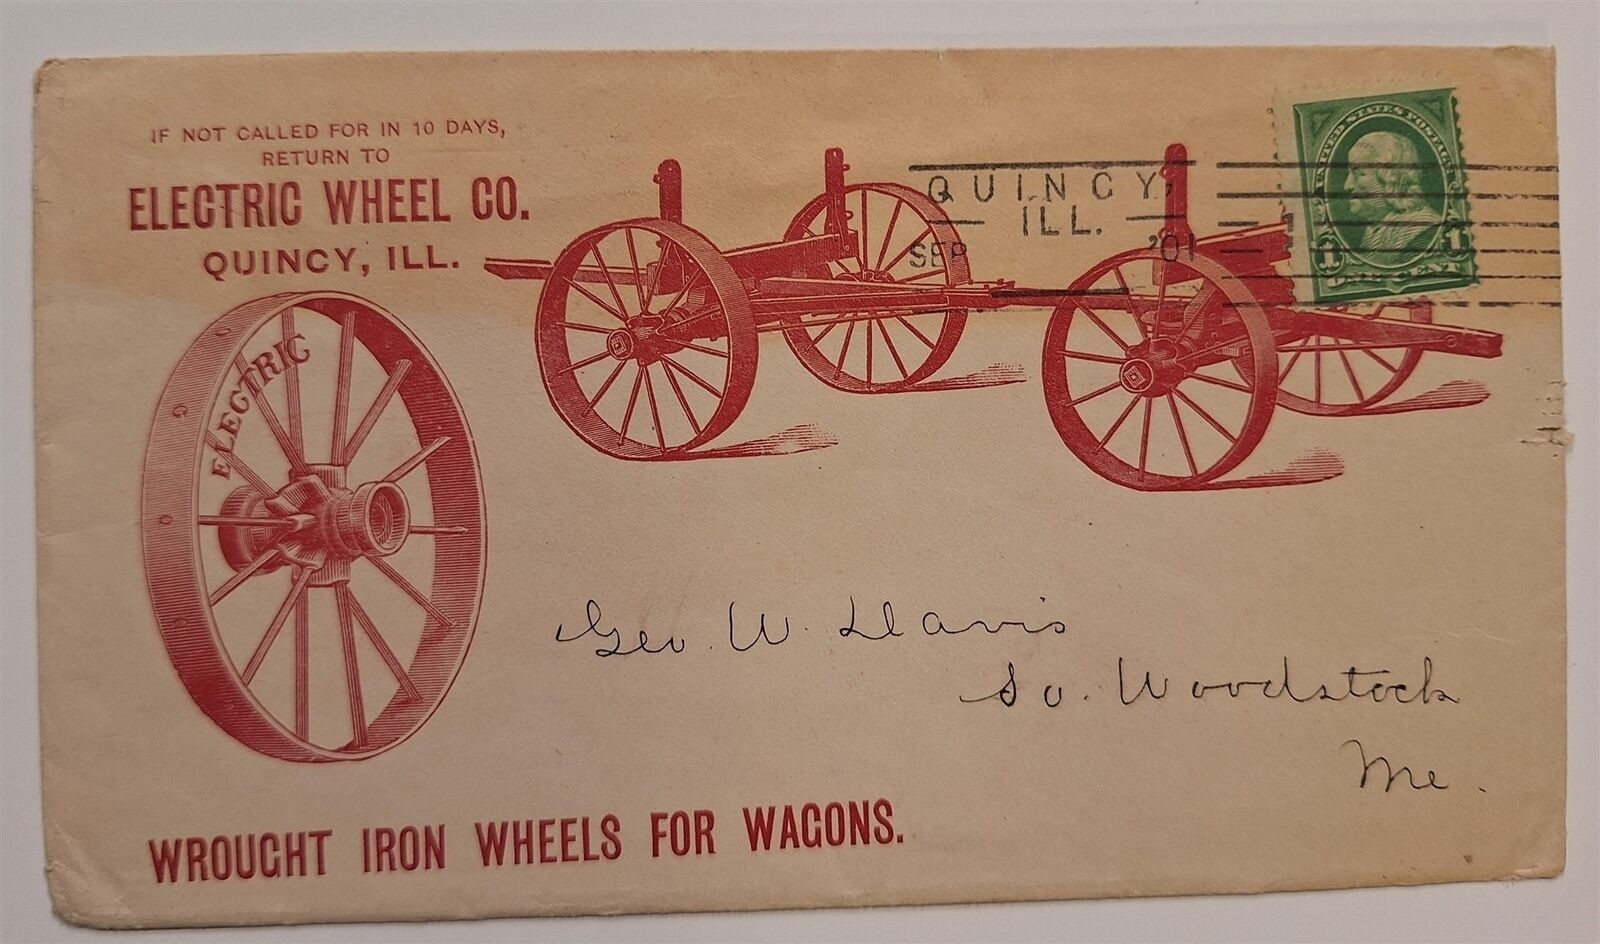 IF NOT CALLED FOR IN 10 DAYS,
RETURN TO
ELECTRIC WHEEL CO.
QUINCY, ILL.
ELECTRIC
QUINCY,
ILL.
SEP '01
UNITED STATES POSTAGE
1 1
ONE CENT
Geo. W. Davis
So. Woodstock
Me.
WROUGHT IRON WHEELS FOR WAGONS.